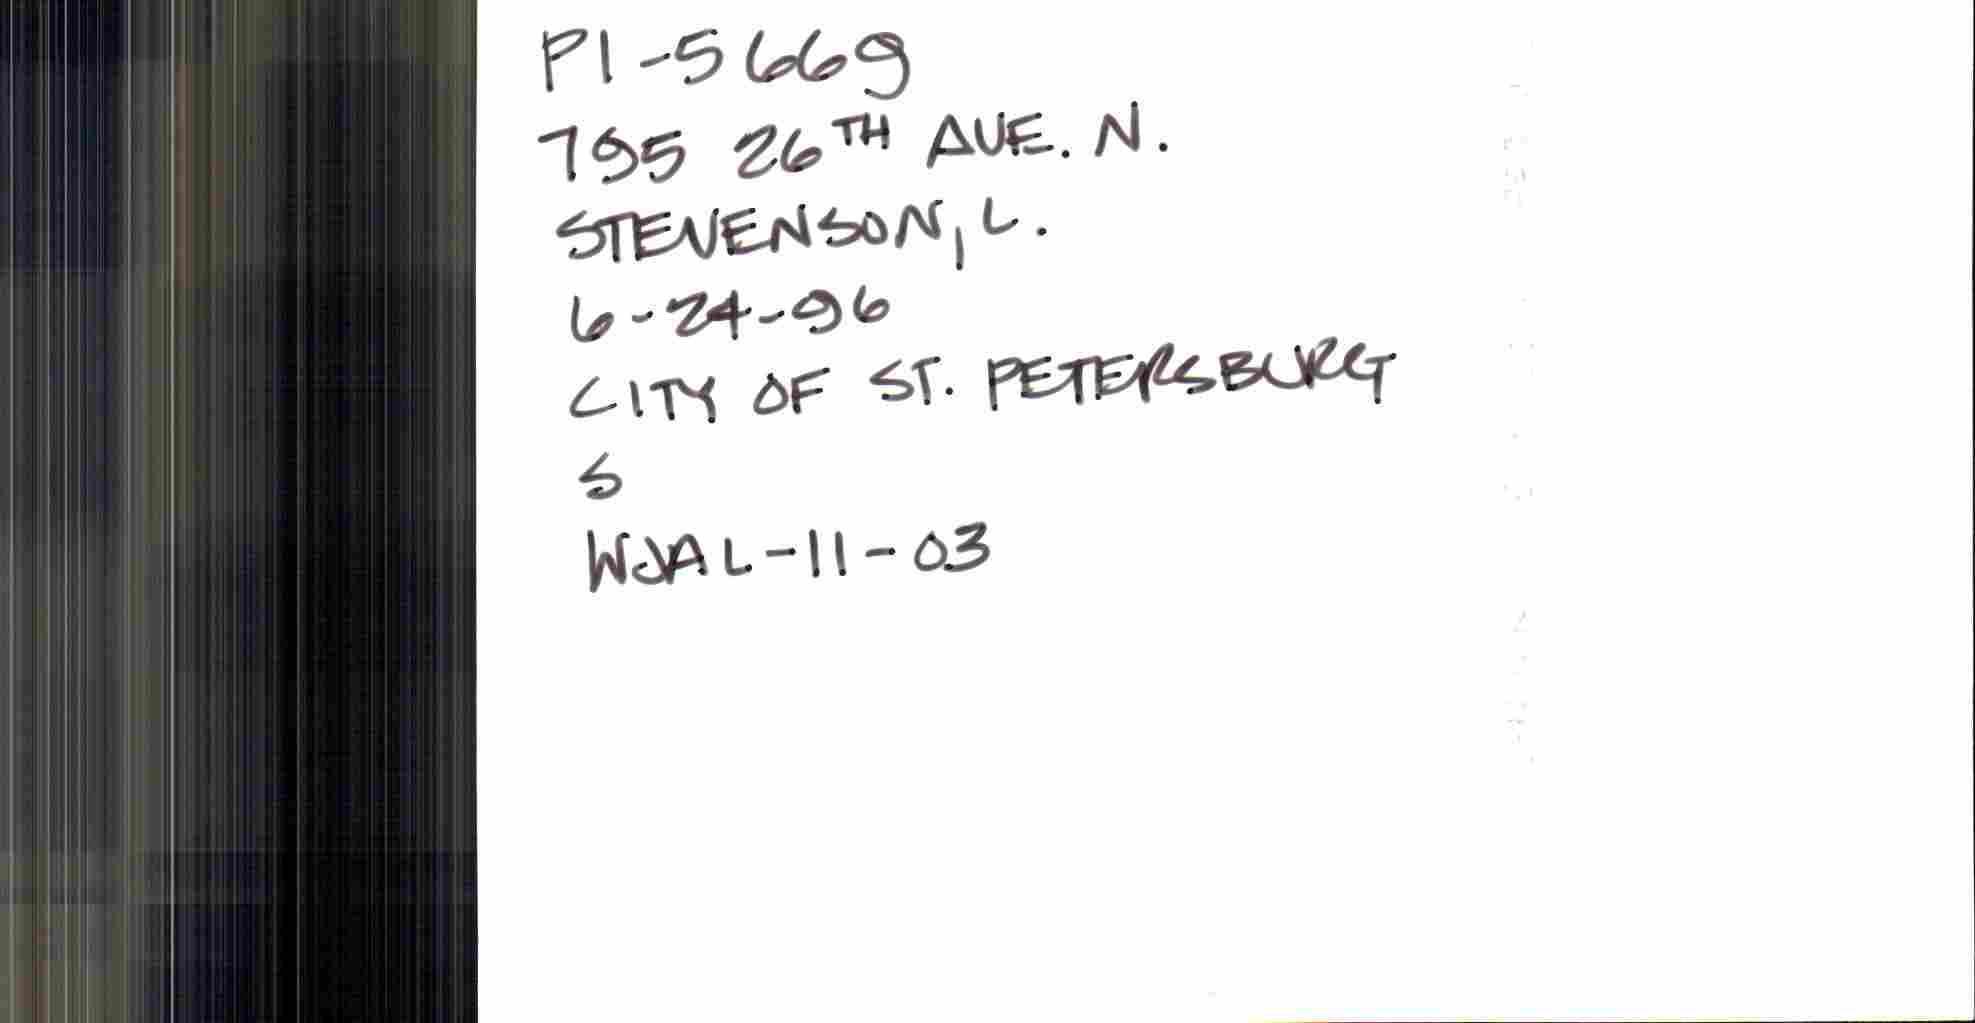 PI-5669
795 26TH AVE. N.
STEVENSON, L.
6-24-96
CITY OF ST. PETERSBURG
S
WJAL-11-03